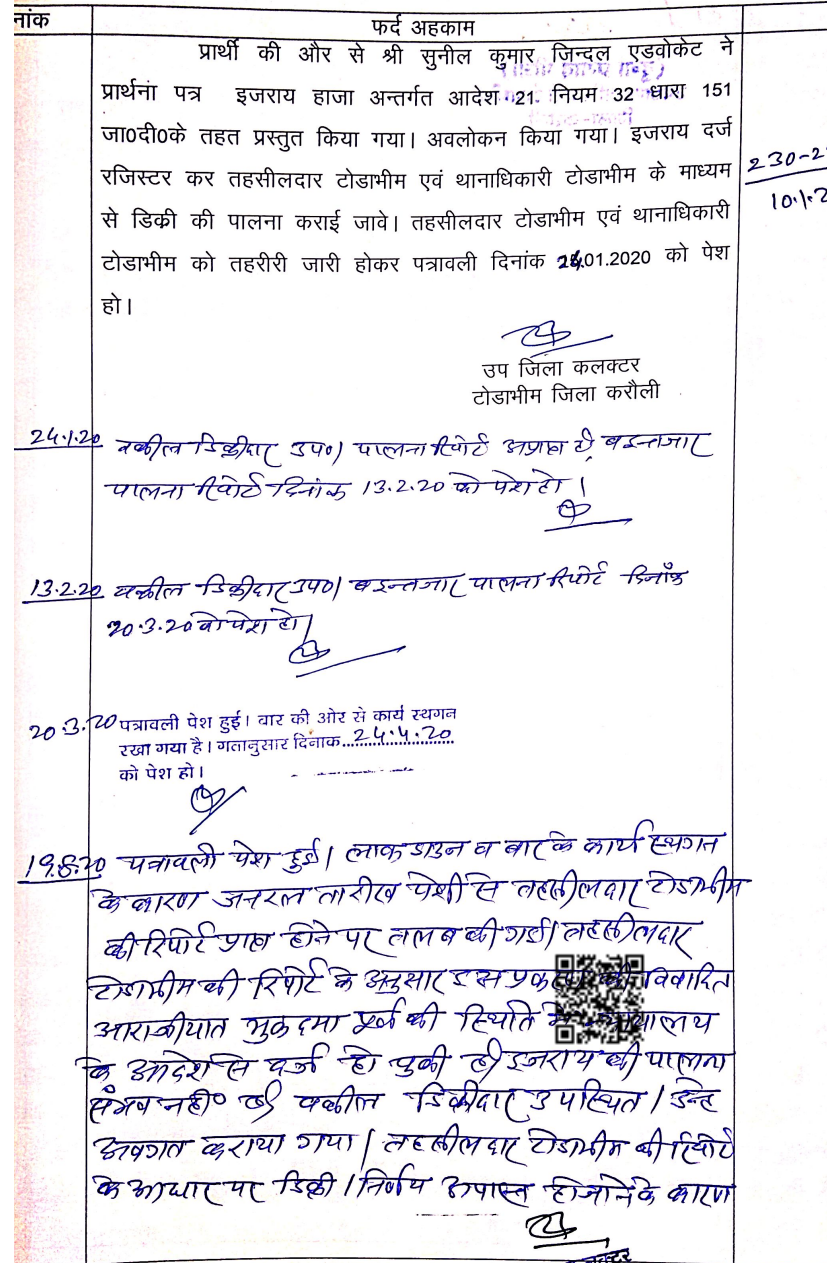 नांक
फर्द अहकाम
प्रार्थी की और से श्री सुनील कुमार जिन्दल एडवोकेट ने
प्रार्थना पत्र इजराय हाजा अन्तर्गत आदेश 21 नियम 32 धारा 151
जा0दी0के तहत प्रस्तुत किया गया। अवलोकन किया गया। इजराय दर्ज
रजिस्टर कर तहसीलदार टोडाभीम एवं थानाधिकारी टोडाभीम के माध्यम
230-2
से डिकी की पालना कराई जावे। तहसीलदार टोडाभीम एवं थानाधिकारी
10.1.2
टोडाभीम को तहरीरी जारी होकर पत्रावली दिनांक 24.01.2020 को पेश
हो।
उप जिला कलक्टर
टोडाभीम जिला करौली
24.1.20 वकील डिक्रीदार उप०। पालना रिपोर्ट अप्राप्त है, बइन्तजार
पालना रिपोर्ट दिनांक 13.2.20 को पेश हो।
13.2.20 वकील डिक्रीदार उप०। बइन्तजार पालना रिपोर्ट दिनाँक
20.3.20 को पेश हो।
20.3.20 पत्रावली पेश हुई। वार की ओर से कार्य स्थगन
रखा गया है। गतानुसार दिनाक...24.4.20...
को पेश हो।
19.8.20 पत्रावली पेश हुई। लाक डाउन व बार के कार्य स्थगन
के कारण जनरल तारीख पेशी से तहसीलदार टोडाभीम
की रिपोर्ट प्राप्त होने पर तलब की गई। तहसीलदार
टोडाभीम की रिपोर्ट के अनुसार इस प्रकरण की विवादित
आराजीयात मुकदमा पूर्व की स्थिति में न्यायालय
के आदेश से दर्ज हो चुकी है। इजराय की पालना
संभव नही० है। वकील डिक्रीदार उपस्थित। उन्हे
अवगत कराया गया। तहसीलदार टोडाभीम की रिपोर्ट
के आधार पर डिक्री/निर्णय अपास्त हो जाने के कारण